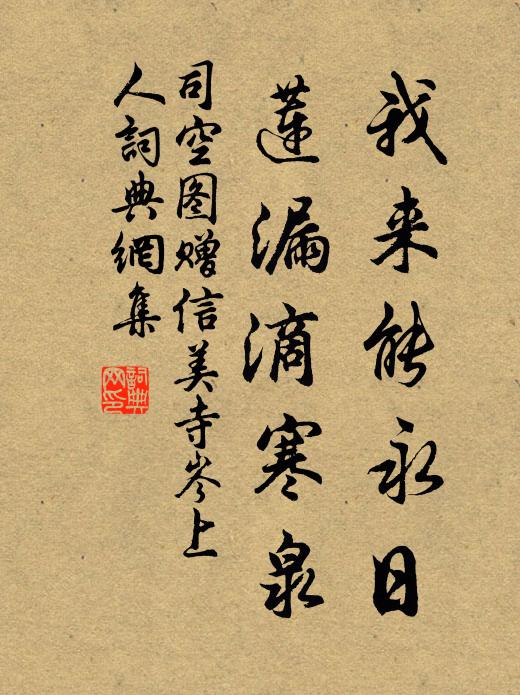 我来能永日
莲漏滴寒泉
司空图赠信美寺岑上
人詞典網集
詞典网印